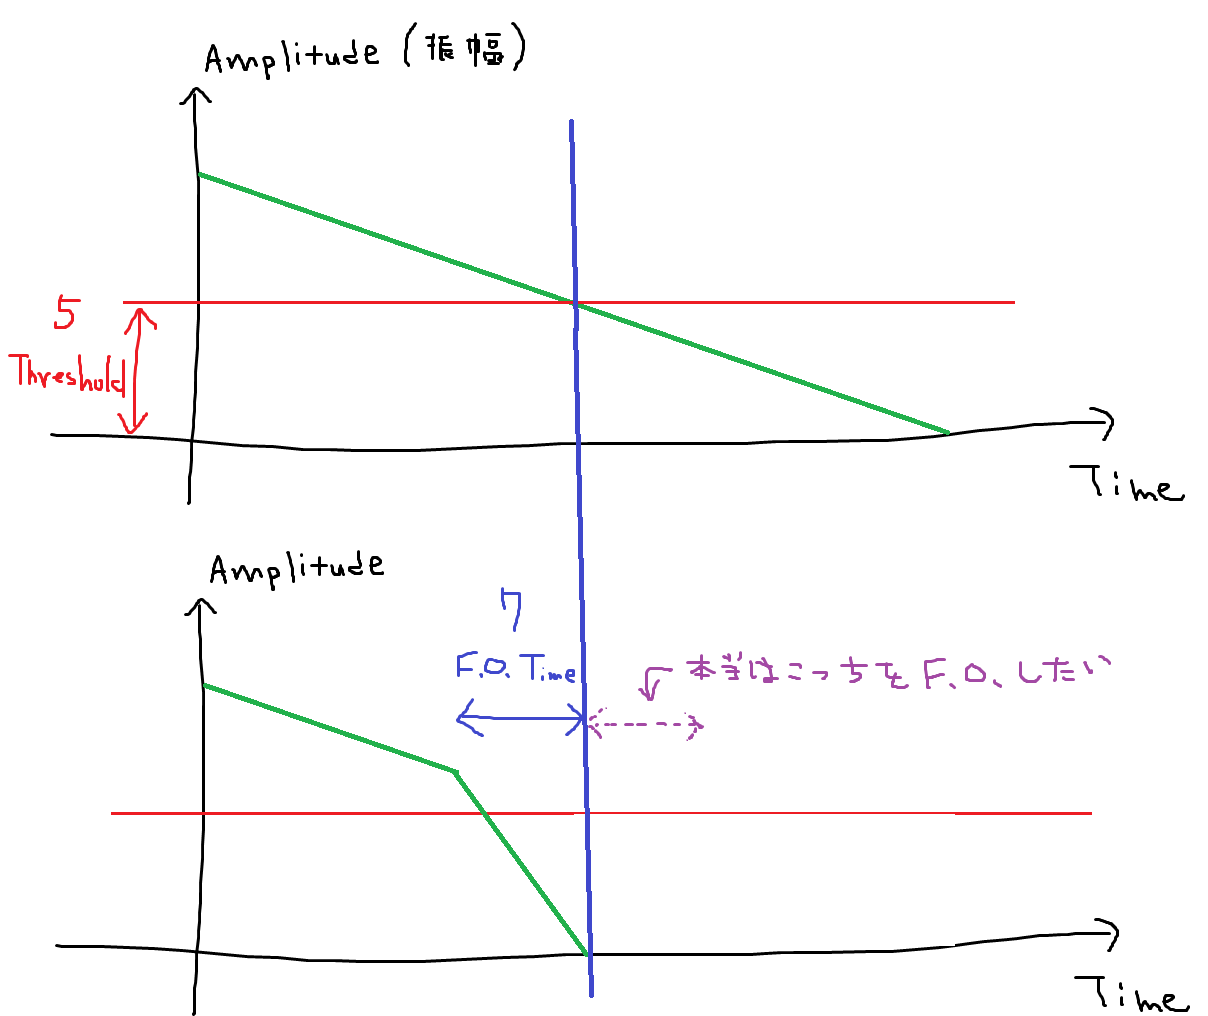 Amplitude (振幅)
5
Threshold
Time
Amplitude
7
F.O. Time
本当はこっちをF.O.したい
Time